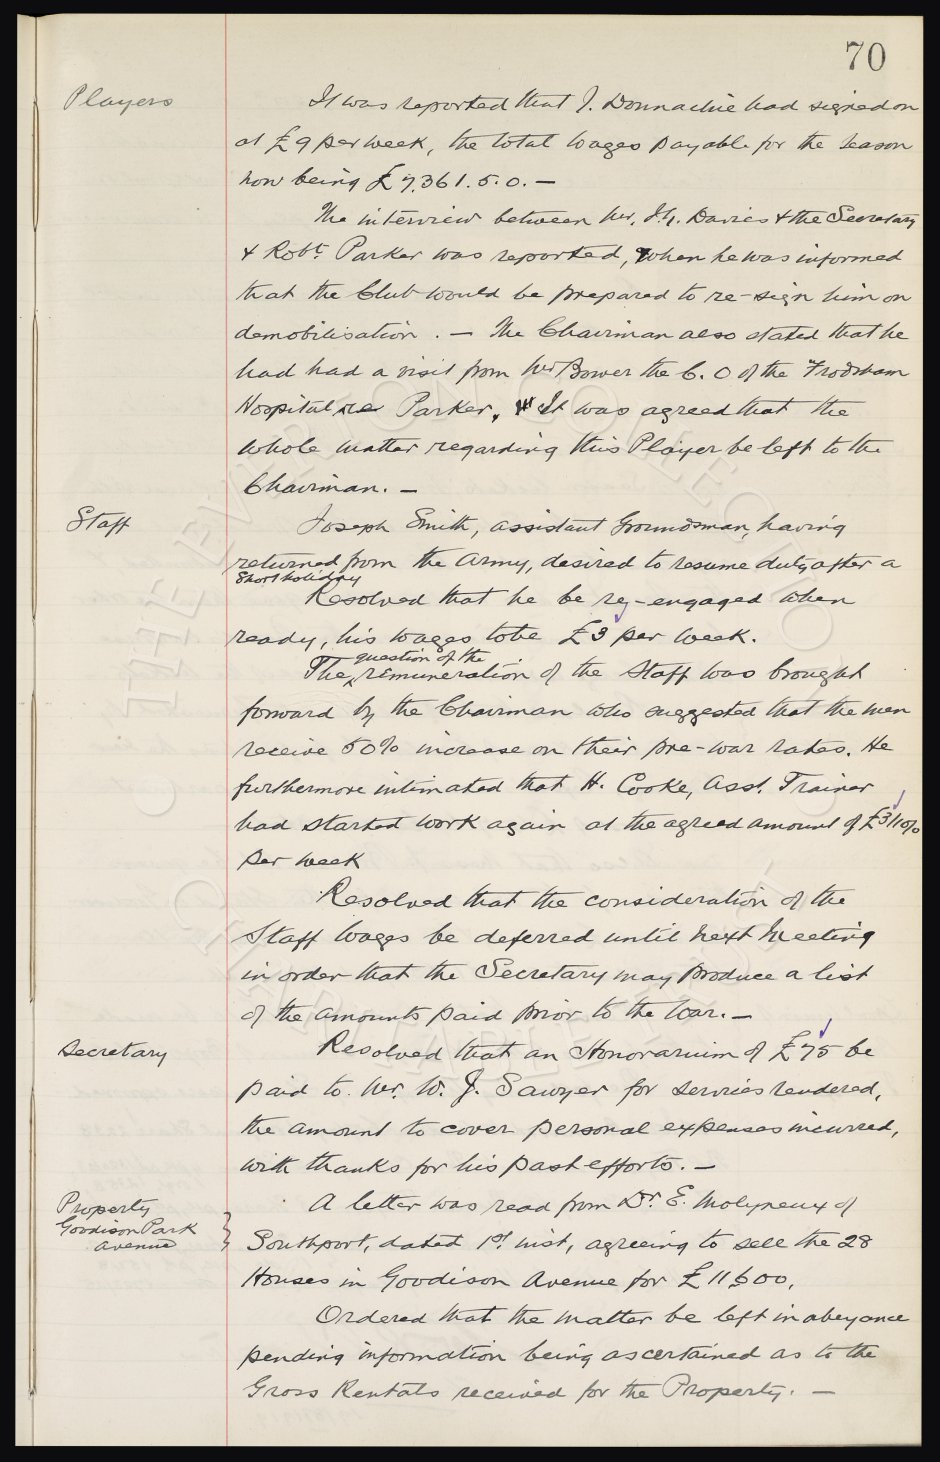 70
Players
It was reported that J. Donnachie had signed on
at £9 per week, the total wages payable for the season
now being £7,361.5.0. —
The interview between Mr. J.H. Davies & the Secretary
& Robt. Parker was reported, when he was informed
that the Club would be prepared to re-sign him on
demobilisation. — The Chairman also stated that he
had had a visit from Mr Bower the C.O of the Frodsham
Hospital re Parker. It was agreed that the
whole matter regarding this Player be left to the
Chairman. —
Staff
Joseph Smith, assistant Groundsman, having
returned from the Army, desired to resume duty after a
short holiday
Resolved that he be re-engaged when
ready, his wages to be £3 per week.
question of the
The remuneration of the Staff was brought
forward by the Chairman who suggested that the men
receive 50% increase on their pre-war rates. He
furthermore intimated that H. Cooke, Asst. Trainer
had started work again at the agreed amount of £3/10/0
per week
Resolved that the consideration of the
Staff Wages be deferred until next Meeting
in order that the Secretary may produce a list
of the amounts paid prior to the War. —
Secretary
Resolved that an Honorarium of £75 be
paid to Mr. W. J. Sawyer for services rendered,
the amount to cover personal expenses incurred,
with thanks for his past efforts. —
Property
Goodison Park
Avenue
A letter was read from Dr. E. Molyneux of
Southport, dated 1st inst, agreeing to sell the 28
Houses in Goodison Avenue for £11,500.
Ordered that the matter be left in abeyance
pending information being ascertained as to the
Gross Rentals received for the Property. —